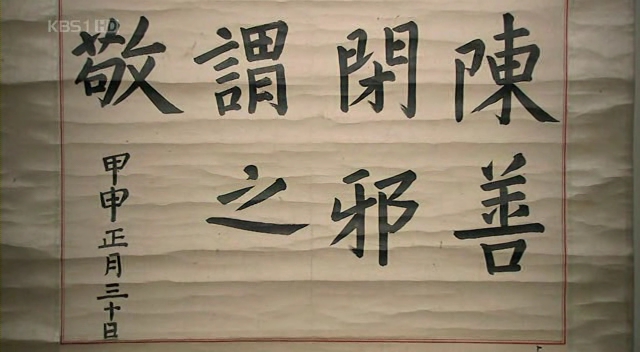 KBS1 HD
陳善
閉邪
謂之
敬
甲申正月三十日